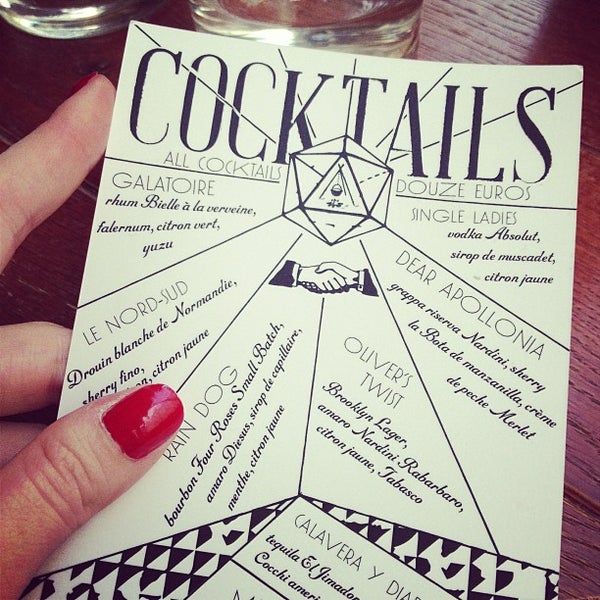 COCKTAILS
ALL COCKTAILS
DOUZE EUROS
GALATOIRE
rhum Bielle à la verveine,
falernum, citron vert,
yuzu
SINGLE LADIES
vodka Absolut,
sirop de muscadet,
citron jaune
LE NORD-SUD
Drouin blanche de Normandie,
sherry fino,
citron jaune
DEAR APOLLONIA
grappa riserva Nardini, sherry
la Bota de manzanilla, crème
de peche Merlet
RAIN DOG
bourbon Four Roses Small Batch,
amaro Diesus, sirop de capillaire,
menthe, citron jaune
OLIVER'S
TWIST
Brooklyn Lager,
amaro Nardini Rabarbaro,
citron jaune, Tabasco
CALAVERA Y
tequila El Jimador
Cocchi